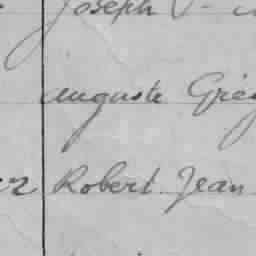 Joseph
auguste Grég
Robert Jean